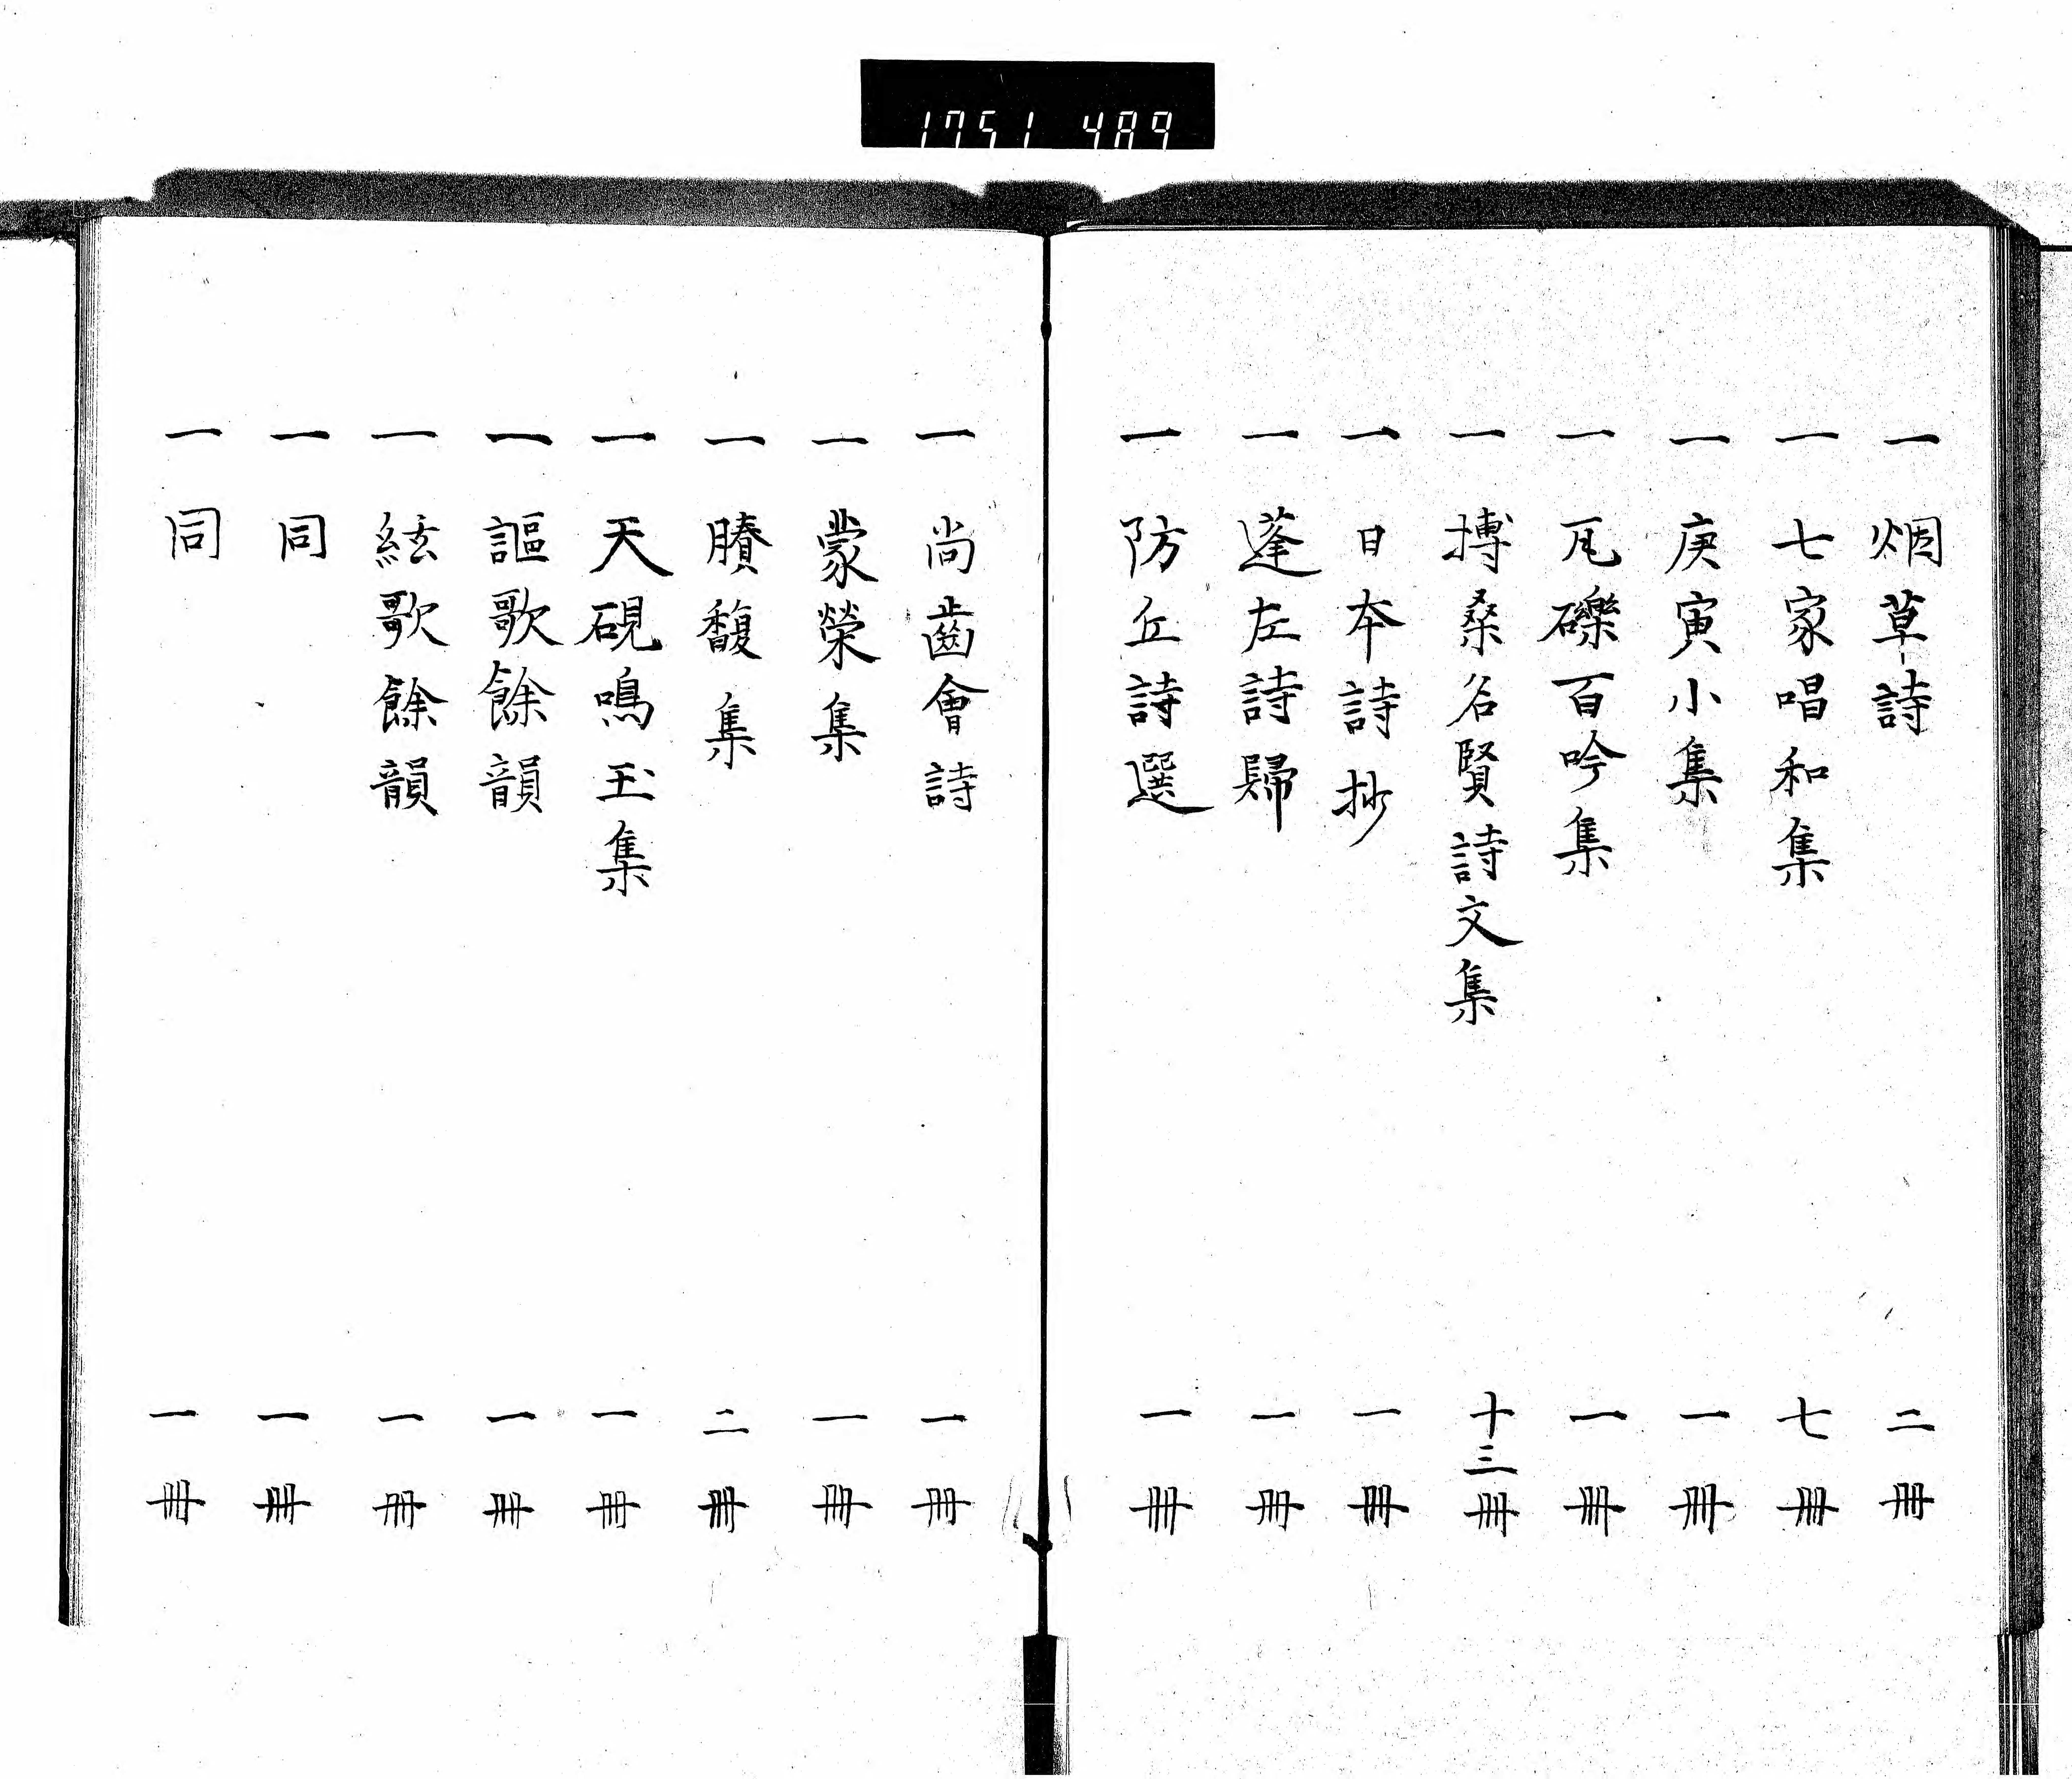 1751 489
一 烟草詩 二冊
一 七家唱和集 七冊
一 庚寅小集 一冊
一 瓦礫百吟集 一冊
一 搏桑名賢詩文集 十三冊
一 日本詩抄 一冊
一 蓬左詩歸 一冊
一 防丘詩選 一冊
一 尚齒會詩 一冊
一 蒙榮集 一冊
一 賸馥集 二冊
一 天硯鳴玉集 一冊
一 謳歌餘韻 一冊
一 絃歌餘韻 一冊
一 同 一冊
一 同 一冊